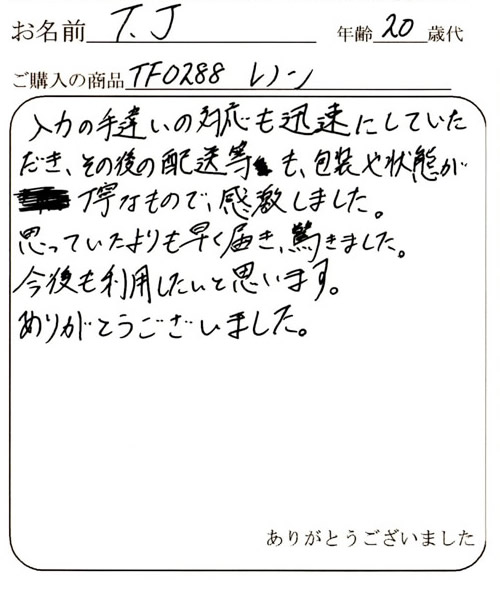 お名前 T.J 年齢 20 歳代
ご購入の商品 TF0288 レノン
入力の手違いの対応も迅速にしていた
だき、その後の配送等も、包装や状態が
丁寧なもので、感激しました。
思っていたよりも早く届き、驚きました。
今後も利用したいと思います。
ありがとうございました。
ありがとうございました